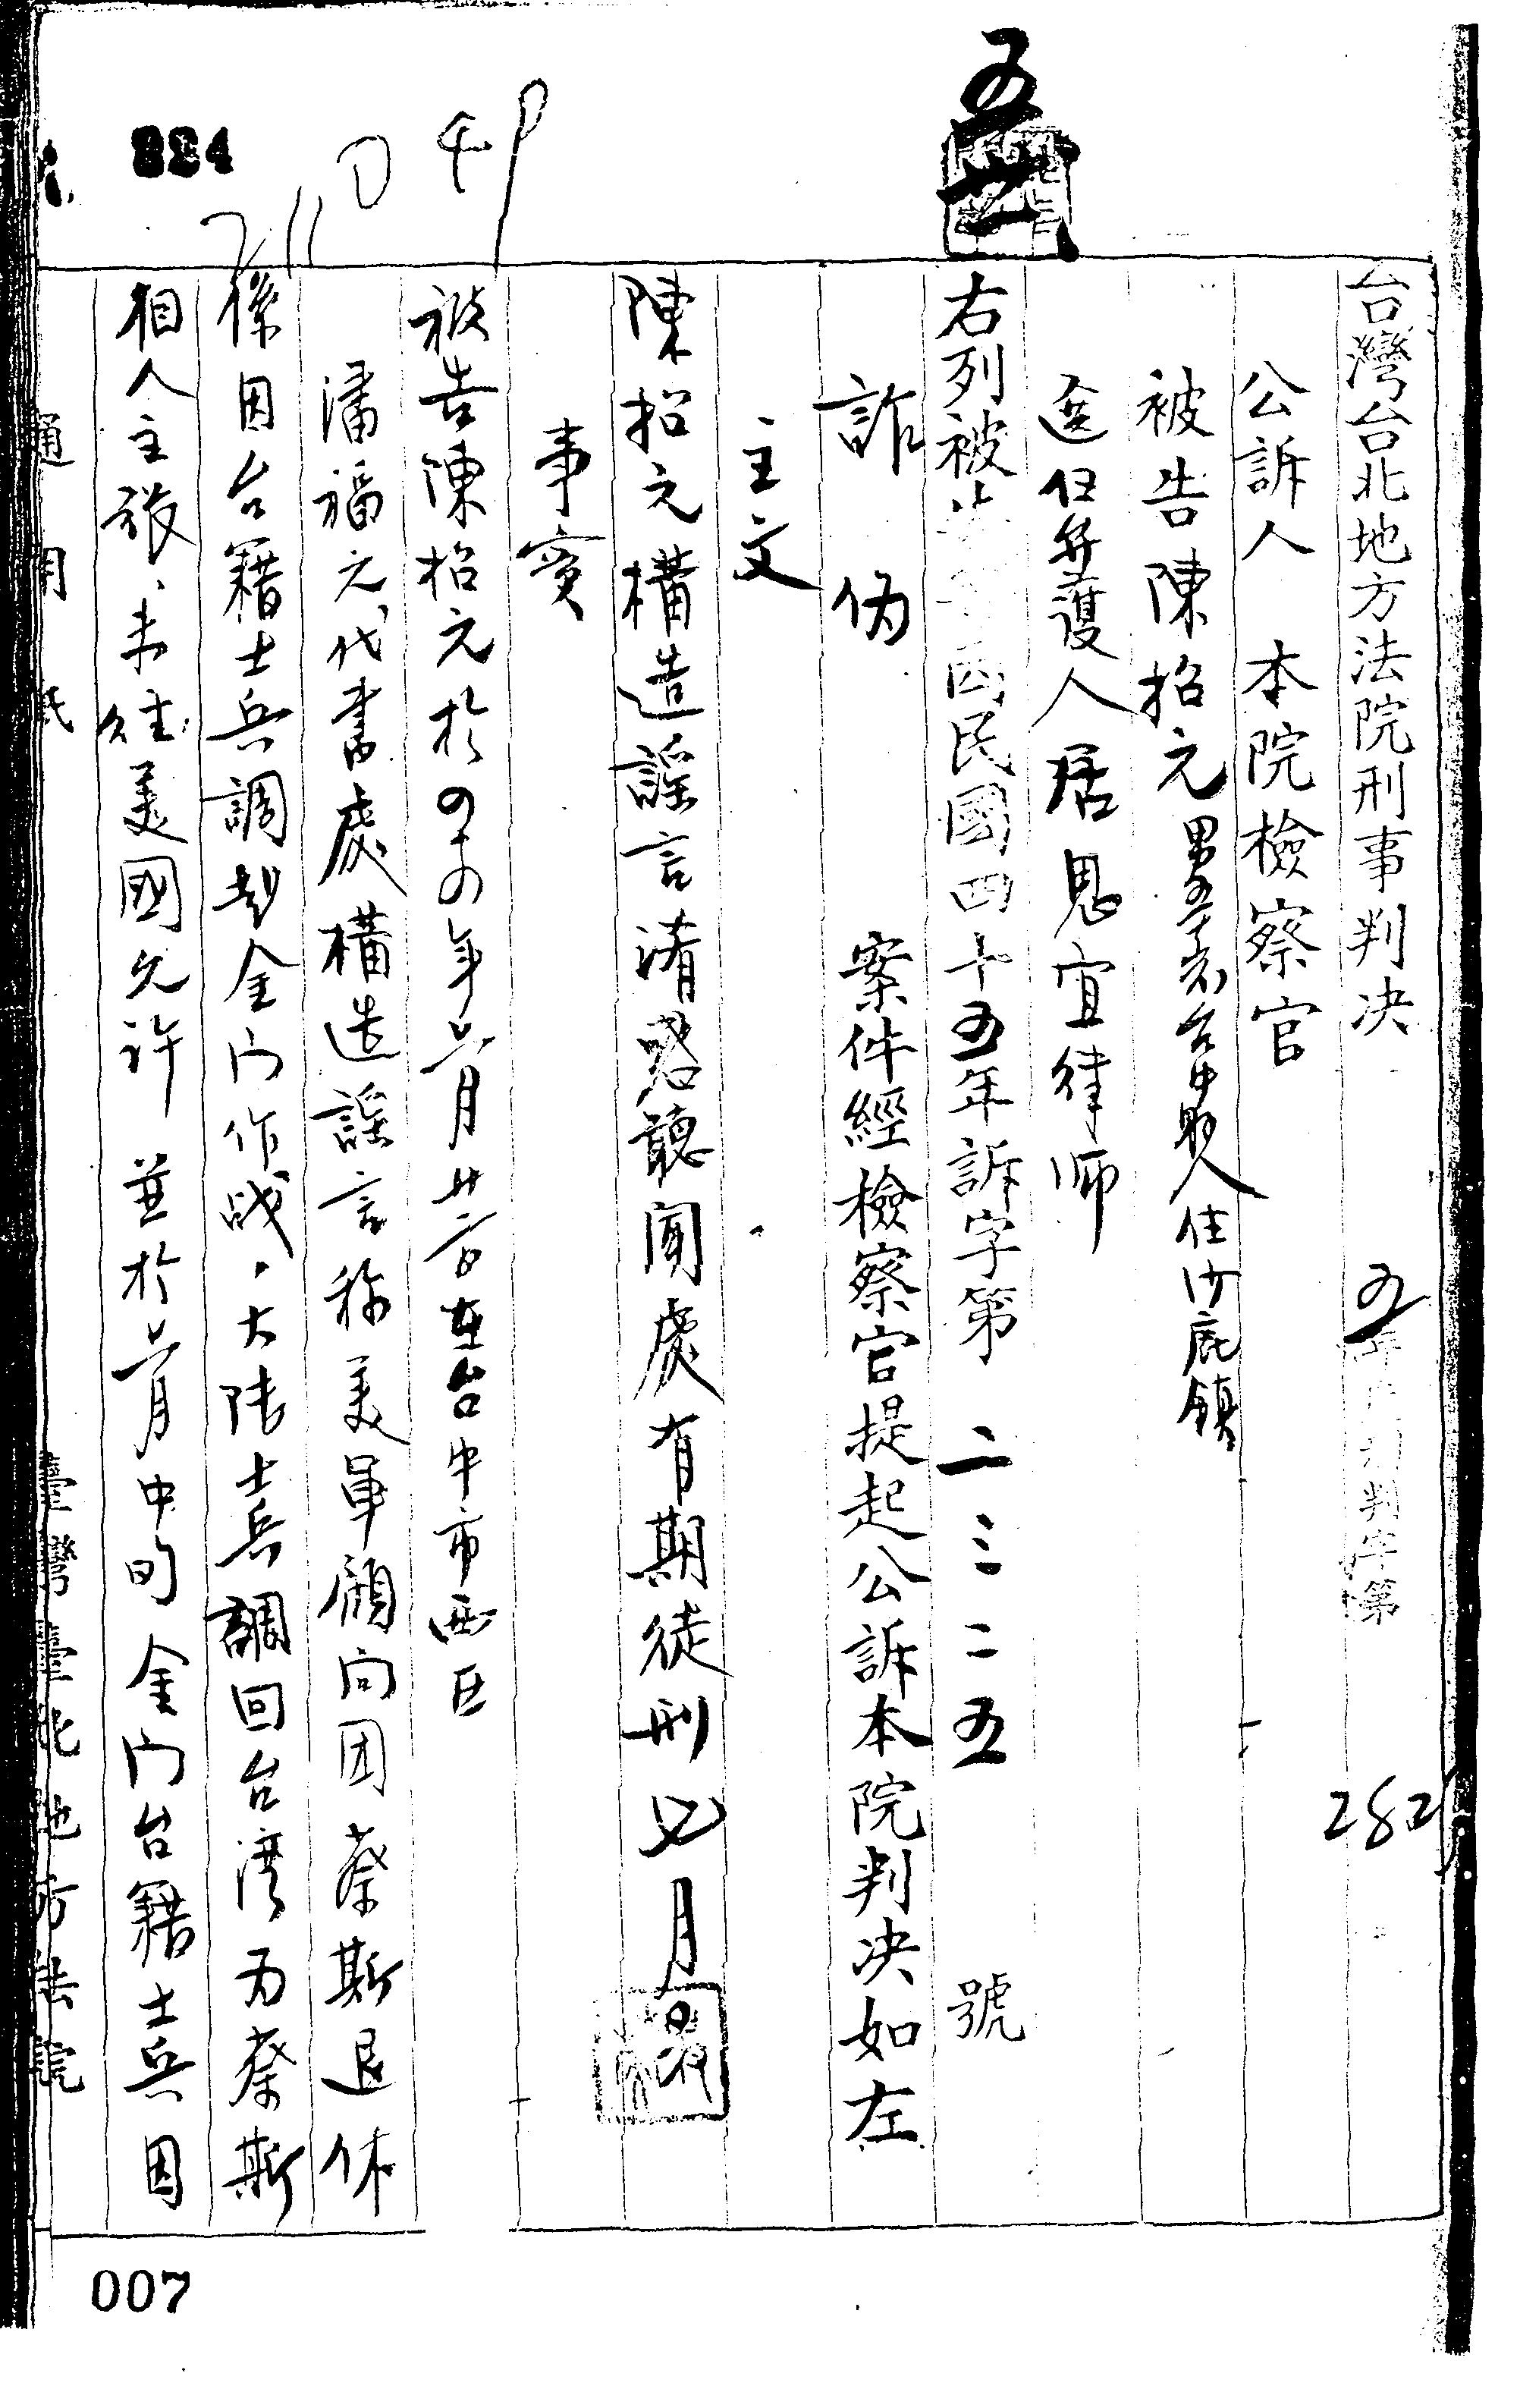 台灣台北地方法院刑事判决 判字第
282
公訴人 本院檢察官
被告陳招元 男 台中縣人住沙鹿鎮
選任辯護人居思宜律師
右列被 民國四十五年訴字第二三二五號
詐偽 案件經檢察官提起公訴本院判决如左
主文
陳招元構造謠言淆惑聽聞處有期徒刑七月
事實
被告陳招元於四十四年六月廿 日在台中市西區
潘福元代書處構造謠言称美軍顧問团蔡斯退休
係因台籍士兵調赴金门作战、大陸士兵調回台湾为蔡斯
個人主張、未經美國允許 並於六月中旬金门台籍士兵因
通用紙 臺灣臺北地方法院
224
007